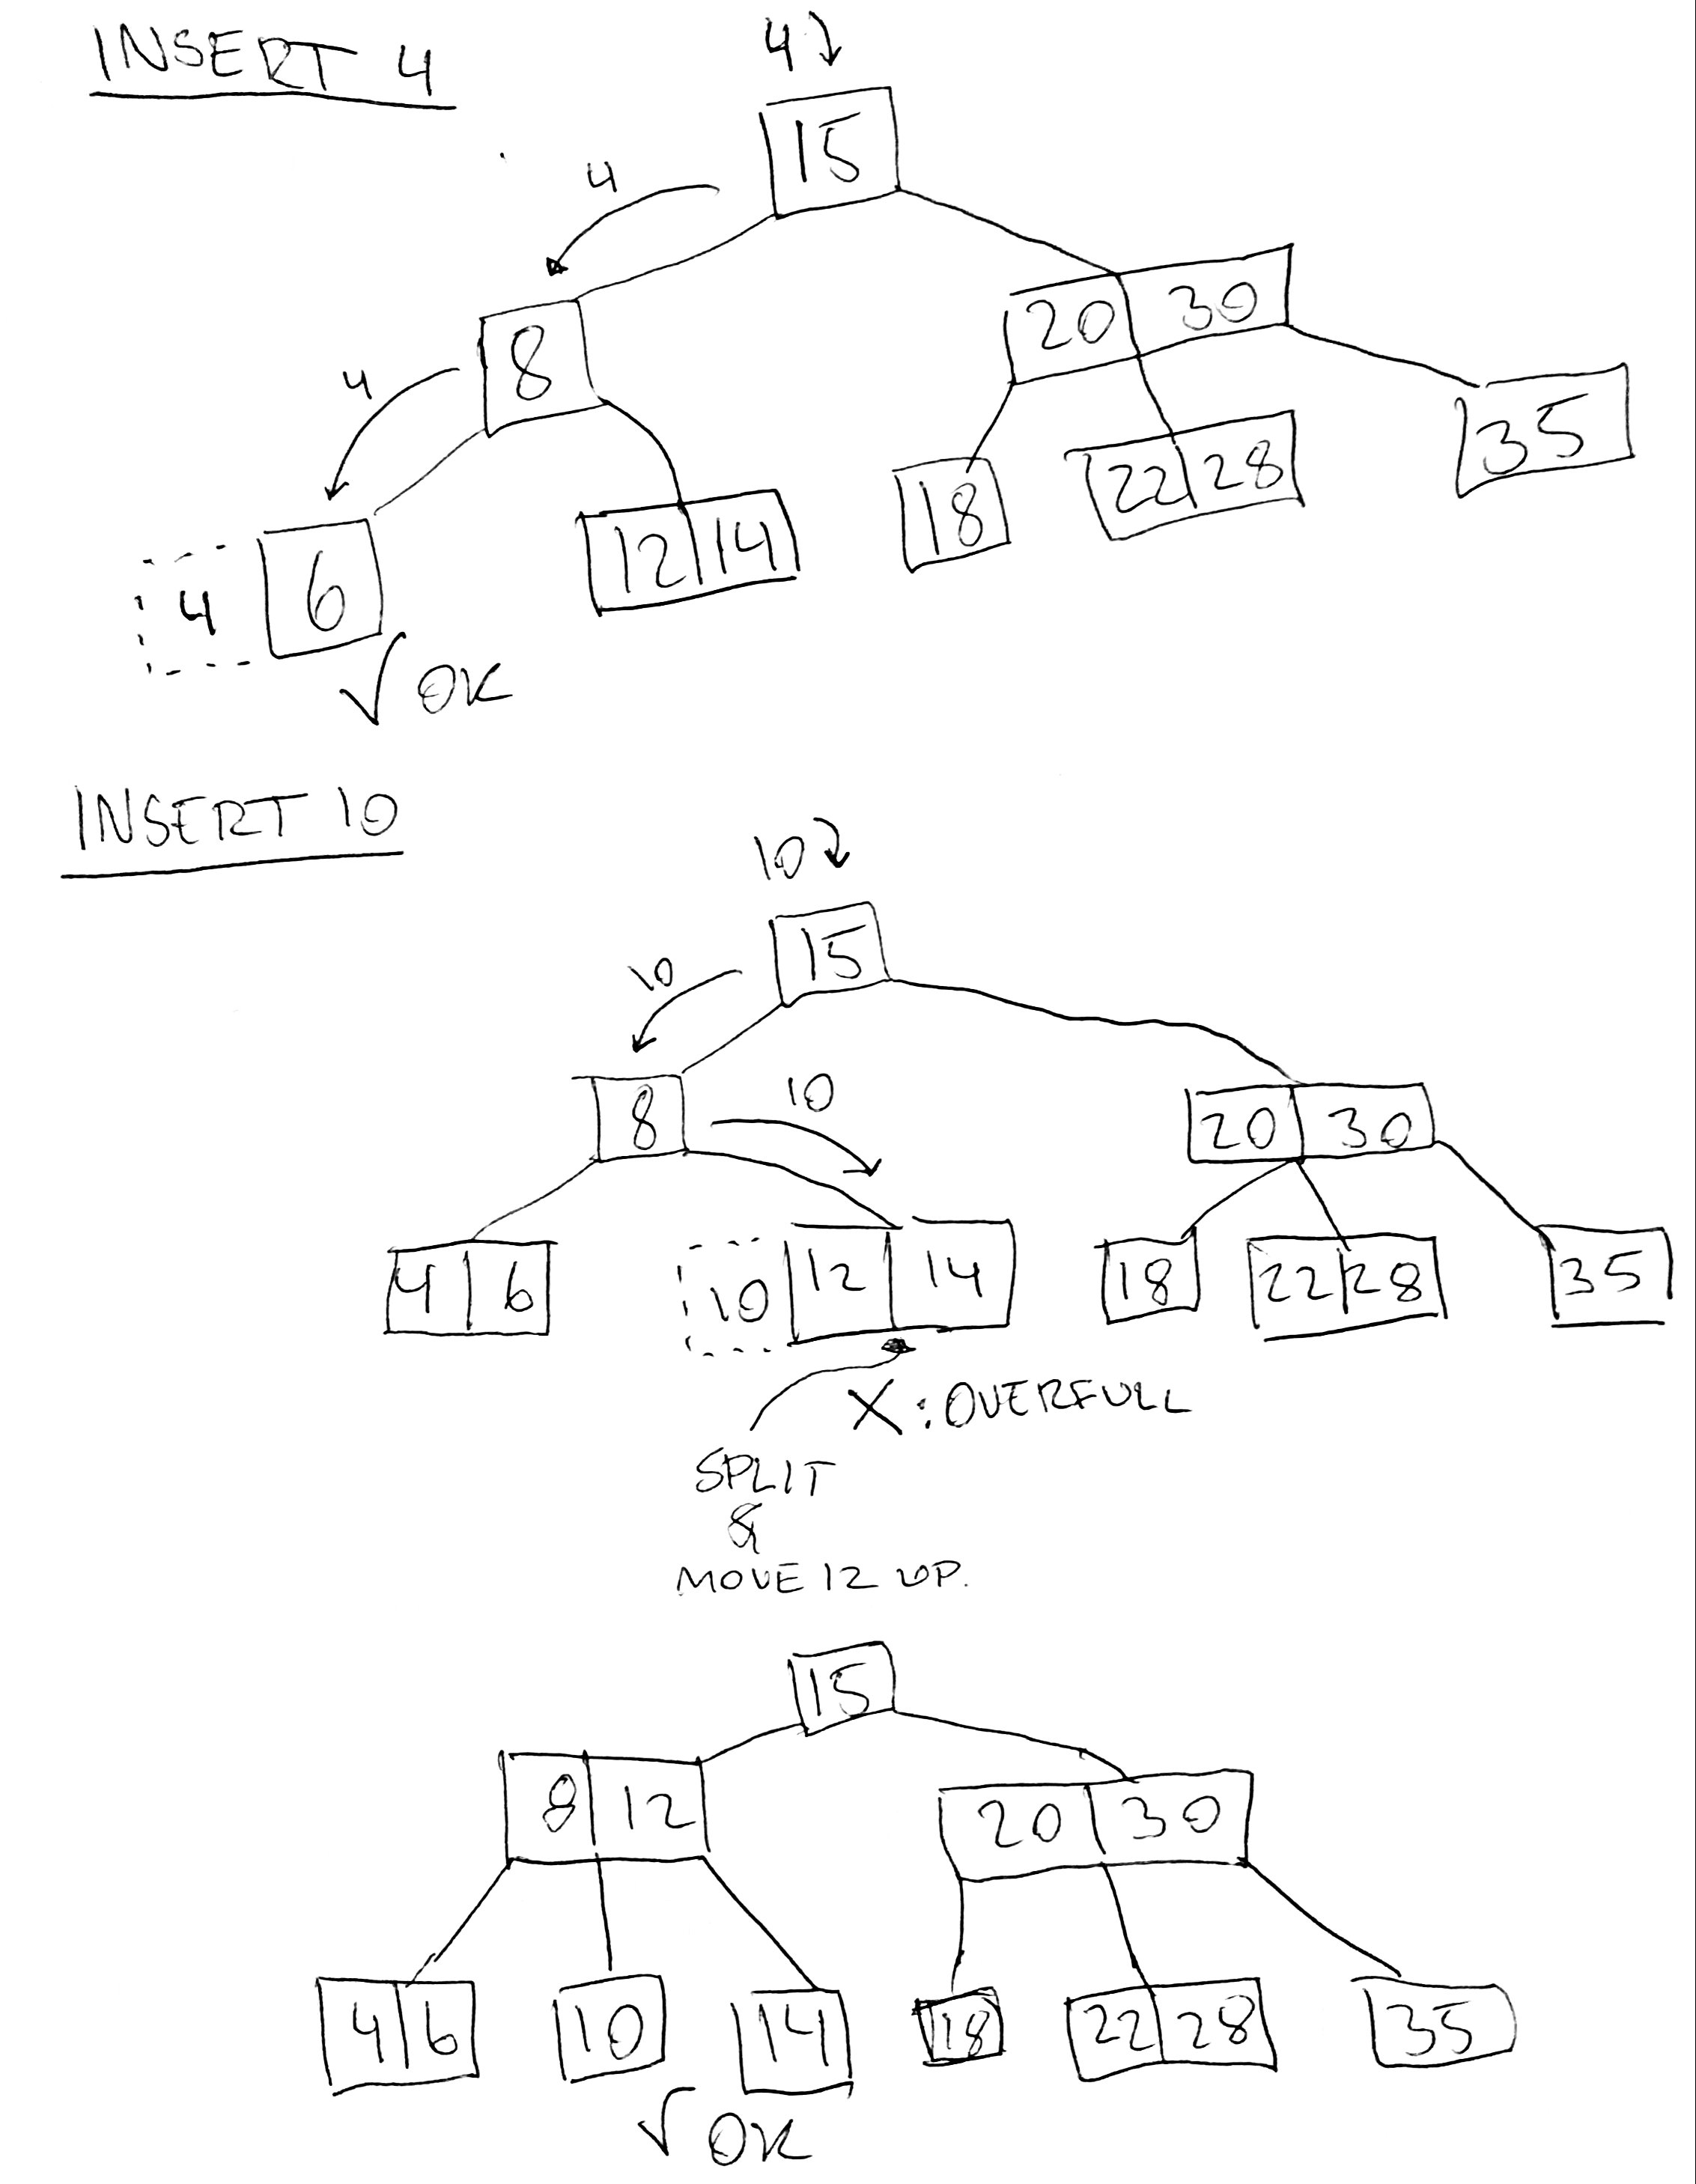 INSERT 4
4
15
4
8
20 30
4
35
18
22 28
12 14
4 6
√ OK
INSERT 10
10
15
10
8
10
20 30
4 6
10 12 14
18
22 28
35
X : OVERFULL
SPLIT
&
MOVE 12 UP.
15
8 12
20 30
4 6
10
14
18
22 28
35
√ OK